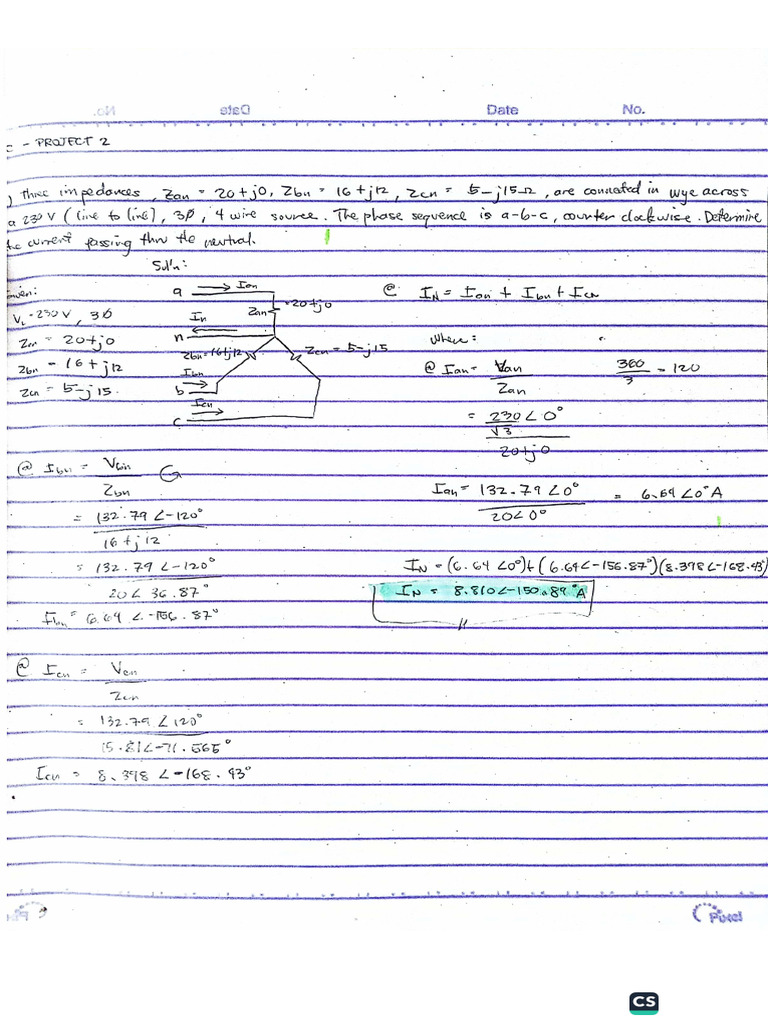 Date No.
c - PROJECT 2
) three impedances, Zan = 20+j0, Zbn = 16+j12, Zcn = 5-j15Ω, are connected in wye across
a 230 V (line to line), 3Ø, 4 wire source. The phase sequence is a-b-c, counter clockwise. Determine
the current passing thru the neutral.
Sol'n:
Given:
VL = 230 V, 3Ø
Zan = 20+j0
Zbn = 16+j12
Zcn = 5-j15
a Ian
Zan = 20+j0
In
n
Zbn = 16+j12 Zcn = 5-j15
Ibn
b
Icn
c
@ IN = Ian + Ibn + Icn
where:
@ Ian = Van 360 = 120
Zan 3
= 230∠0°
√3
20+j0
Ian = 132.79∠0° = 6.64∠0°A
20∠0°
@ Ibn = Vbn
Zbn
= 132.79∠-120°
16+j12
= 132.79∠-120°
20∠36.87°
Ibn = 6.64∠-156.87°
IN = (6.64∠0°)+(6.64∠-156.87°)(8.398∠-168.43°)
IN = 8.810∠-150.89°A
@ Icn = Vcn
Zcn
= 132.79∠120°
15.81∠-71.565°
Icn = 8.398∠-168.43°
Pixel
CS